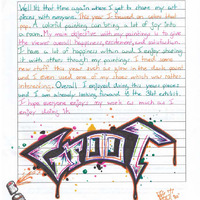 Well it's that time again where I get to share my art
along with everyone. This year I focused on colors that
pop. A colorful painting can bring a lot of joy into
a room. My main objective with my paintings is to give
the viewer overall happiness, excitement, and exhilaration.
I have a lot of happiness within and I enjoy sharing
it with others though my paintings. I tried some
new stuff this year such as glow in the dark paint
and I even used one of my shoes which was rather
interesting. Overall I enjoyed doing this years pieces
and I am already looking forward to the 31st exhibit.
I hope everyone enjoys my work as much as I
enjoy doing it.